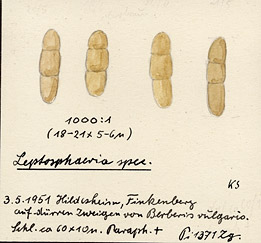 1000:1
(18-21 x 5-6µ)
Leptosphaeria spec.
KS
3.5.1951 Hildesheim, Finkenberg
auf dürren Zweigen von Berberis vulgaris.
Schl. ca 60x10µ. Paraph. + Pi 1371 Zg.